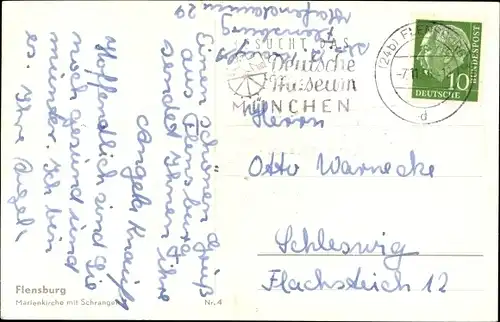 Einen schönen Gruß
aus Flensburg
sendet Ihnen Ihre
Angela Knauft
Hoffentlich sind Sie
noch gesund und
munter. Ich bin
es. Ihre Angela
Flensburg
Marienkirche mit Schrangen
Nr. 4
Flensburg
Hafendamm 29
BESUCHT DAS
Deutsche
Museum
MÜNCHEN
(24b) FLENSBURG
d
DEUTSCHE
BUNDESPOST
10
Herrn
Otto Warnecke
Schleswig
Flachsteich 12